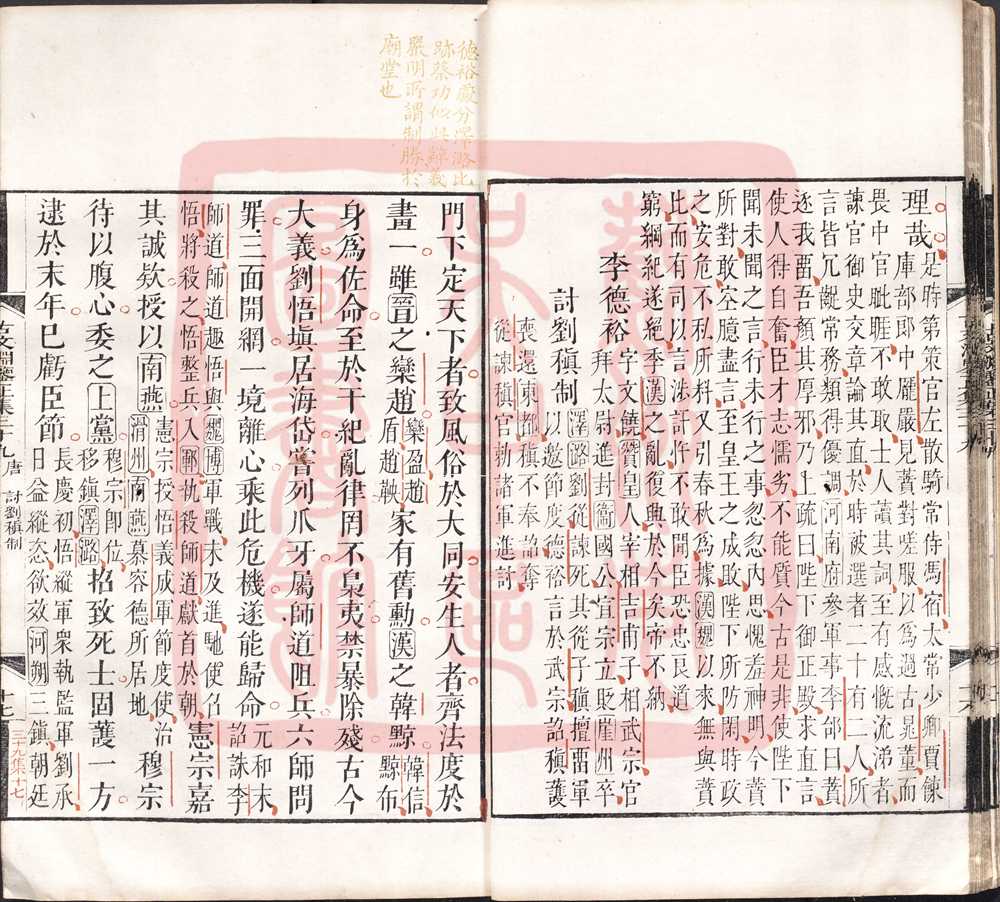 理哉是時第策官左散騎常侍馮宿太常少卿賈餗
庫部郎中龐嚴見蕡對嗟服以為過古晁董而
畏中官眦睚不敢取士人讀其詞至有感慨流涕者
諫官御史交章論其直於時被選者二十有二人所
言皆冗齪常務類得優調河南府參軍事李郃曰蕡
逐我畱吾顏其厚邪乃上疏曰陛下御正殿求直言
使人得自奮臣才志懦劣不能質今古是非使陛下
聞未聞之言行未行之事忽忽內思愧羞神明今蕡
所對敢空臆盡言至皇王之成敗陛下所防閑時政
之安危不私所料又引春秋為據漢魏以來無與蕡
比而有司以言涉訐忤不敢聞臣恐忠良道
窮綱紀遂絕季漢之亂復興於今矣帝不納
李德裕字文饒贊皇人宰相吉甫子相武宗官
拜太尉進封衞國公宣宗立貶崖州卒
討劉稹制澤潞劉從諫死其從子稹擅畱軍
以邀節度德裕言於武宗詔稹護
喪還東都稹不奉詔奪
從諫稹官勑諸軍進討
德裕處分澤潞比
跡蔡功似此辭義
嚴明所謂制勝於
廟堂也
門下定天下者致風俗於大同安生人者齊法度於
畫一雖晉之欒趙欒盈趙盾趙鞅家有舊勳漢之韓黥韓信黥布
身為佐命至於干紀亂律罔不梟夷禁暴除殘古今
大義劉悟塡居海岱嘗列爪牙屬師道阻兵六師問
罪三面開網一境離心乘此危機遂能歸命元和末詔誅李
師道師道趣悟與魏博軍戰未及進馳使召
悟將殺之悟整兵入鄆執殺師道獻首於朝憲宗嘉
其誠欵授以南燕憲宗授悟義成軍節度使治滑州南燕慕容德所居地穆宗
待以腹心委之上黨穆宗卽位移鎭澤潞招致死士固護一方
逮於末年已虧臣節長慶初悟縱軍衆執監軍劉承日益縱恣欲效河朔三鎭朝廷
文淵鑒古集三十九 唐 討劉稹制
十七
三十九集十七